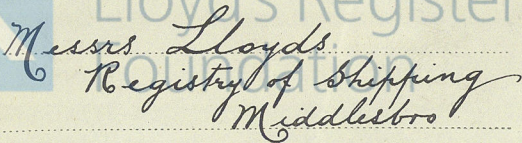 Lloyd's Register
Foundation
Messrs Lloyds
Registry of Shipping
Middlesbro